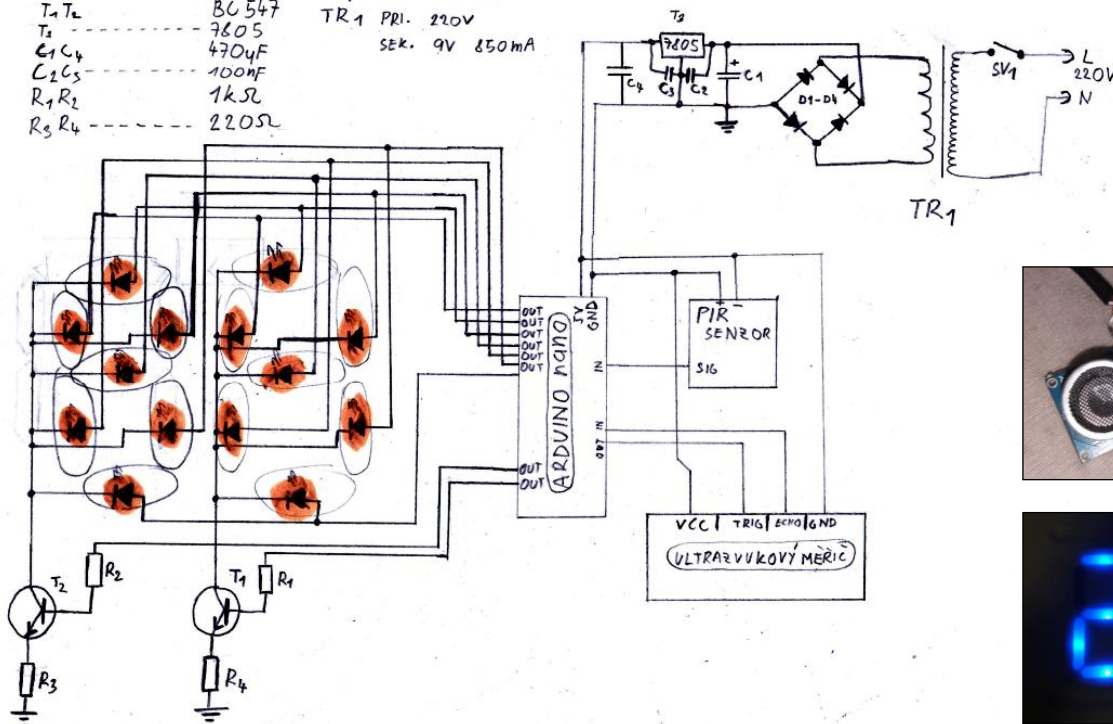 T1 T2 BC547
T3 -------- 7805
C1 C4 470µF
C2 C3 -------- 100nF
R1 R2 1kΩ
R3 R4 -------- 220Ω
TR1 PRI. 220V
SEK. 9V 850mA
T3
7805
C4
C3
C2
+
C1
D1-D4
SV1
L
220V
N
TR1
OUT
OUT
OUT
OUT
OUT
OUT
5V
GND
ARDUINO nano
IN
IN
OUT
OUT
OUT
+ -
PIR
SENZOR
SIG
VCC | TRIG | ECHO | GND
ULTRAZVUKOVÝ MĚŘIČ
R2
T2
R3
T1
R1
R4